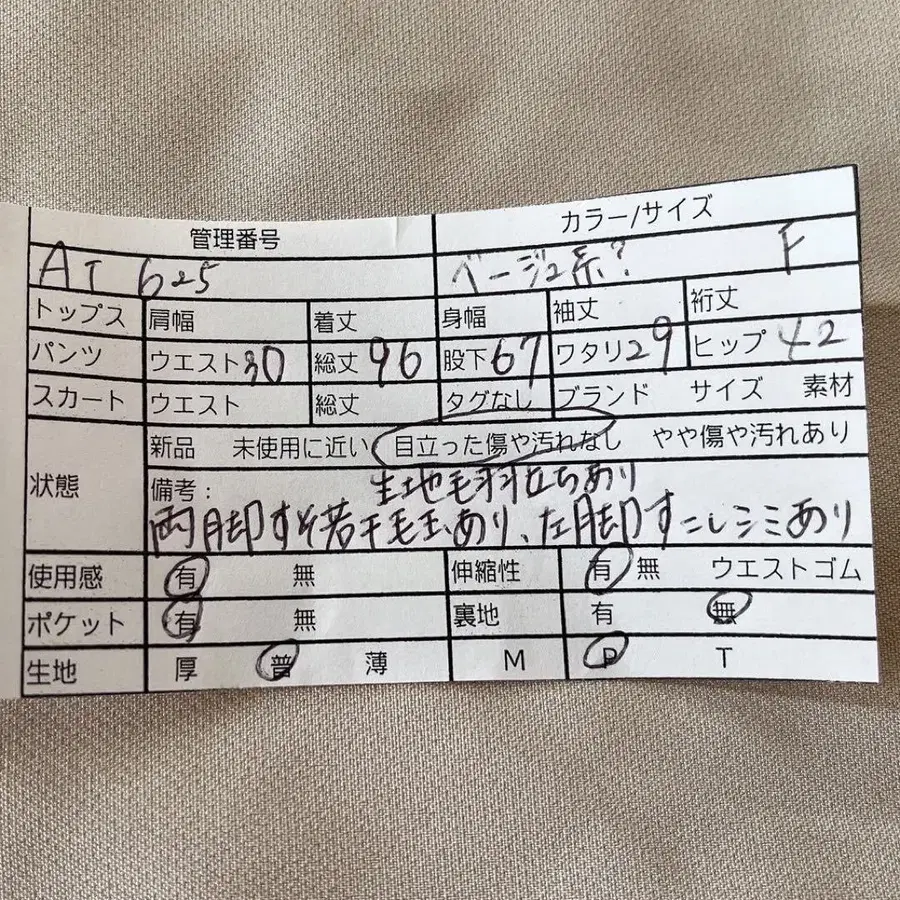 管理番号 カラー/サイズ
AT 625 ベージュ系? F
トップス 肩幅 着丈 身幅 袖丈 裄丈
パンツ ウエスト30 総丈96 股下67 ワタリ29 ヒップ42
スカート ウエスト 総丈 タグなし ブランド サイズ 素材
状態 新品 未使用に近い 目立った傷や汚れなし やや傷や汚れあり
備考: 生地毛羽立ちあり
両脚すそ若干毛玉あり、左脚すこしシミあり
使用感 有 無 伸縮性 有 無 ウエストゴム
ポケット 有 無 裏地 有 無
生地 厚 普 薄 M P T